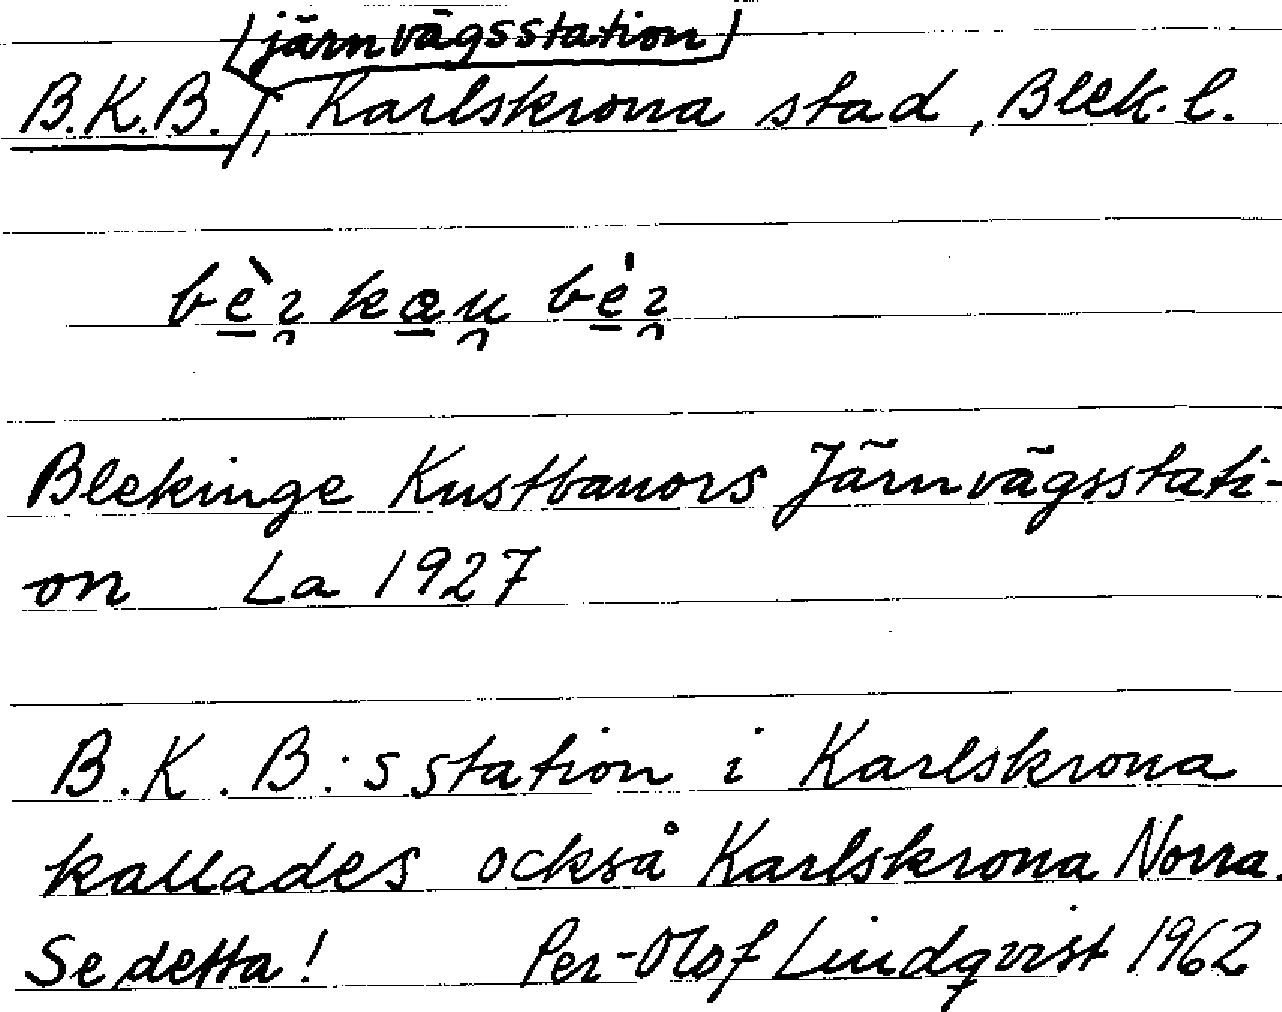 (järnvägsstation)
B.K.B., Karlskrona stad, Blek. l.
Blekinge Kustbanors Järnvägsstati-
on La 1927
B.K.B:s station i Karlskrona
kallades också Karlskrona Norra.
Se detta! Per-Olof Lindqvist 1962